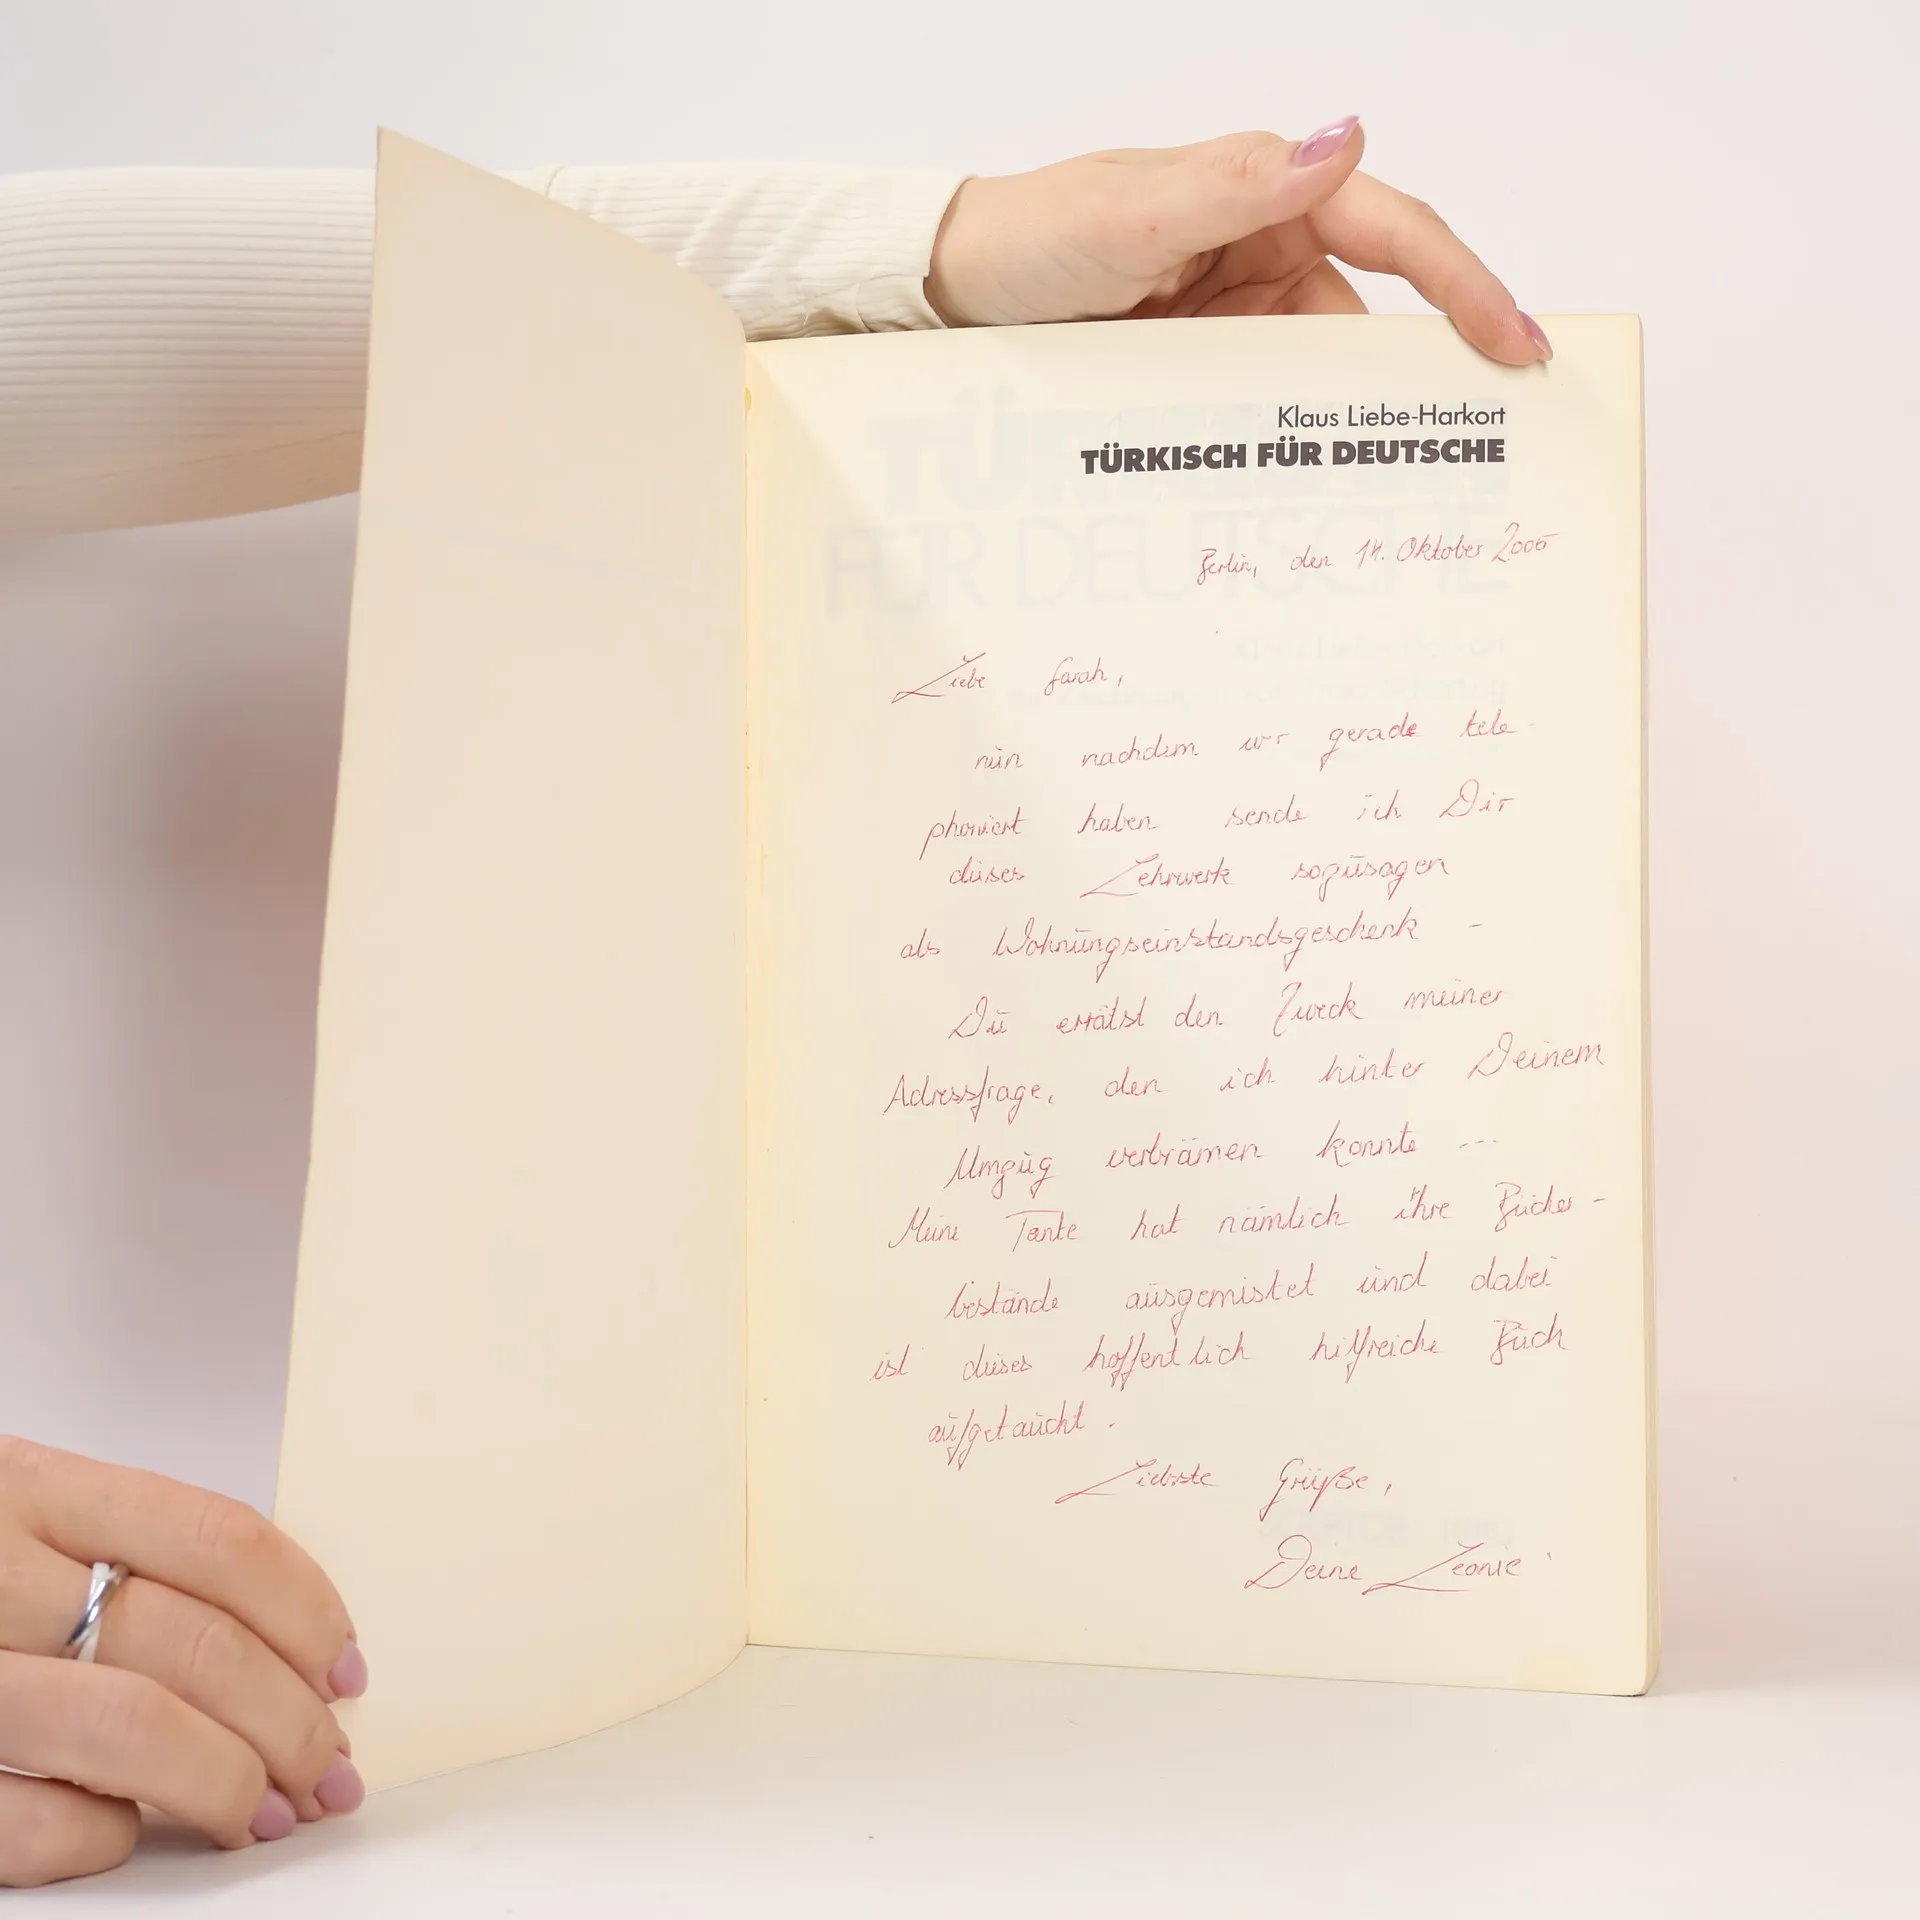 Klaus Liebe-Harkort
TÜRKISCH FÜR DEUTSCHE
Berlin, den 14. Oktober 2005
Liebe Sarah,
nun nachdem wir gerade tele-
phoniert haben sende ich Dir
dieses Lehrwerk sozusagen
als Wohnungseinstandsgeschenk -
Du errätst den Zweck meiner
Adressfrage, den ich hinter Deinem
Umzug verbrämen konnte ---
Meine Tante hat nämlich ihre Bücher-
bestände ausgemistet und dabei
ist dieses hoffentlich hilfreiche Buch
aufgetaucht.
Liebste Grüße,
Deine Leonie